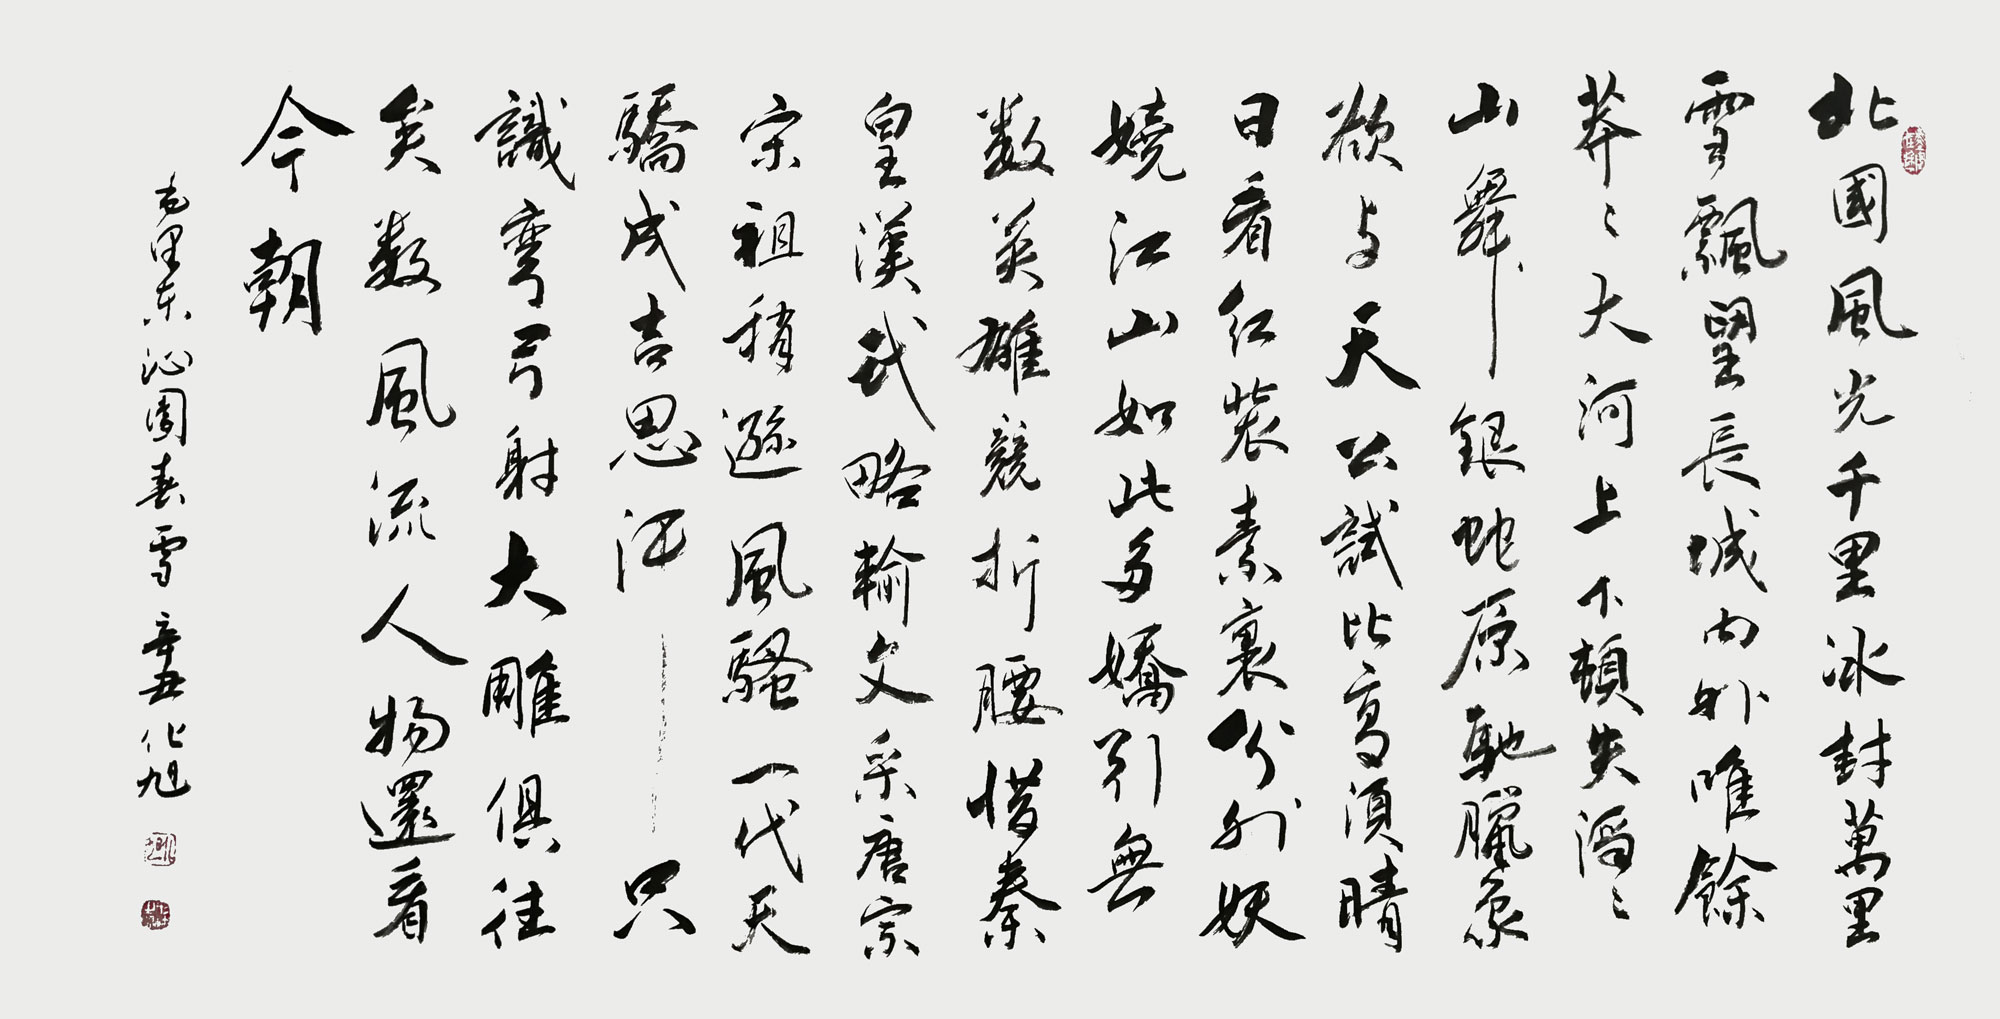 北國風光千里冰封萬里
雪飄望長城内外唯餘
莽〻大河上下頓失滔〻
山舞銀蛇原馳臘象
欲与天公試比高須晴
日看红裝素裹分外妖
嬈江山如此多嬌引無
数英雄競折腰惜秦
皇漢武略輸文采唐宗
宋祖稍遜風騷一代天
驕成吉思汗只
識彎弓射大雕俱往
矣数風流人物還看
今朝
毛泽东沁園春雪辛丑化旭